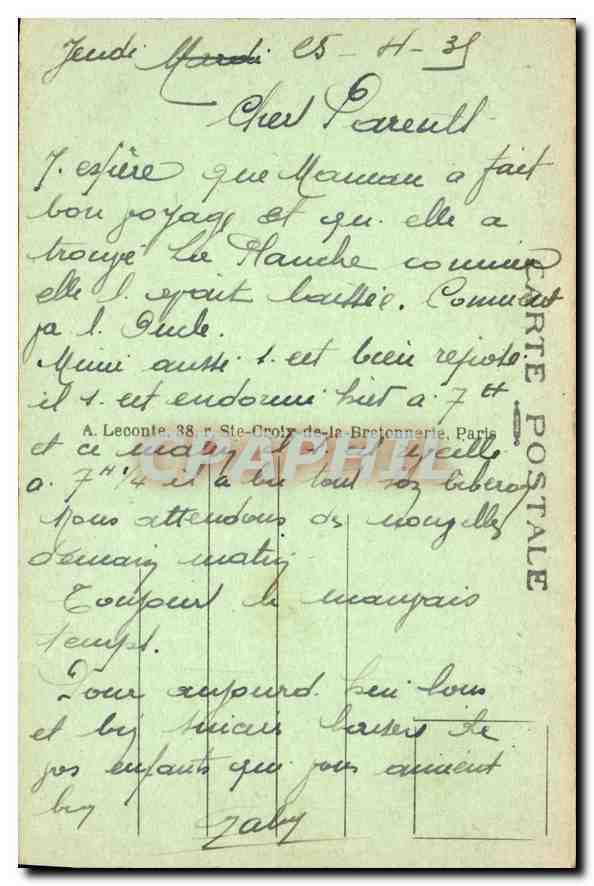 Jeudi Mardi 25 - 4 - 35
Chers Parents
J. espère que Maman a fait
bon voyage et qu. elle a
trouvé La Planche comme
elle l. avait laissée. Comment
va l. Oncle.
Mimi aussi s. est bien reposé.
il s. est endormi hier à 7 H
A. Leconte, 38, r. Ste-Croix-de-la-Bretonnerie, Paris
et ce matin il s. est éveillé
à 7 H 1/4 et a bu tout son biberon
Nous attendons des nouvelles
demain matin
Toujours le mauvais
temps.
Pour aujourd. hui bons
et bien baisers de
vos enfants qui vous aiment
bien
Gaby
CARTE POSTALE
CPAPHIL